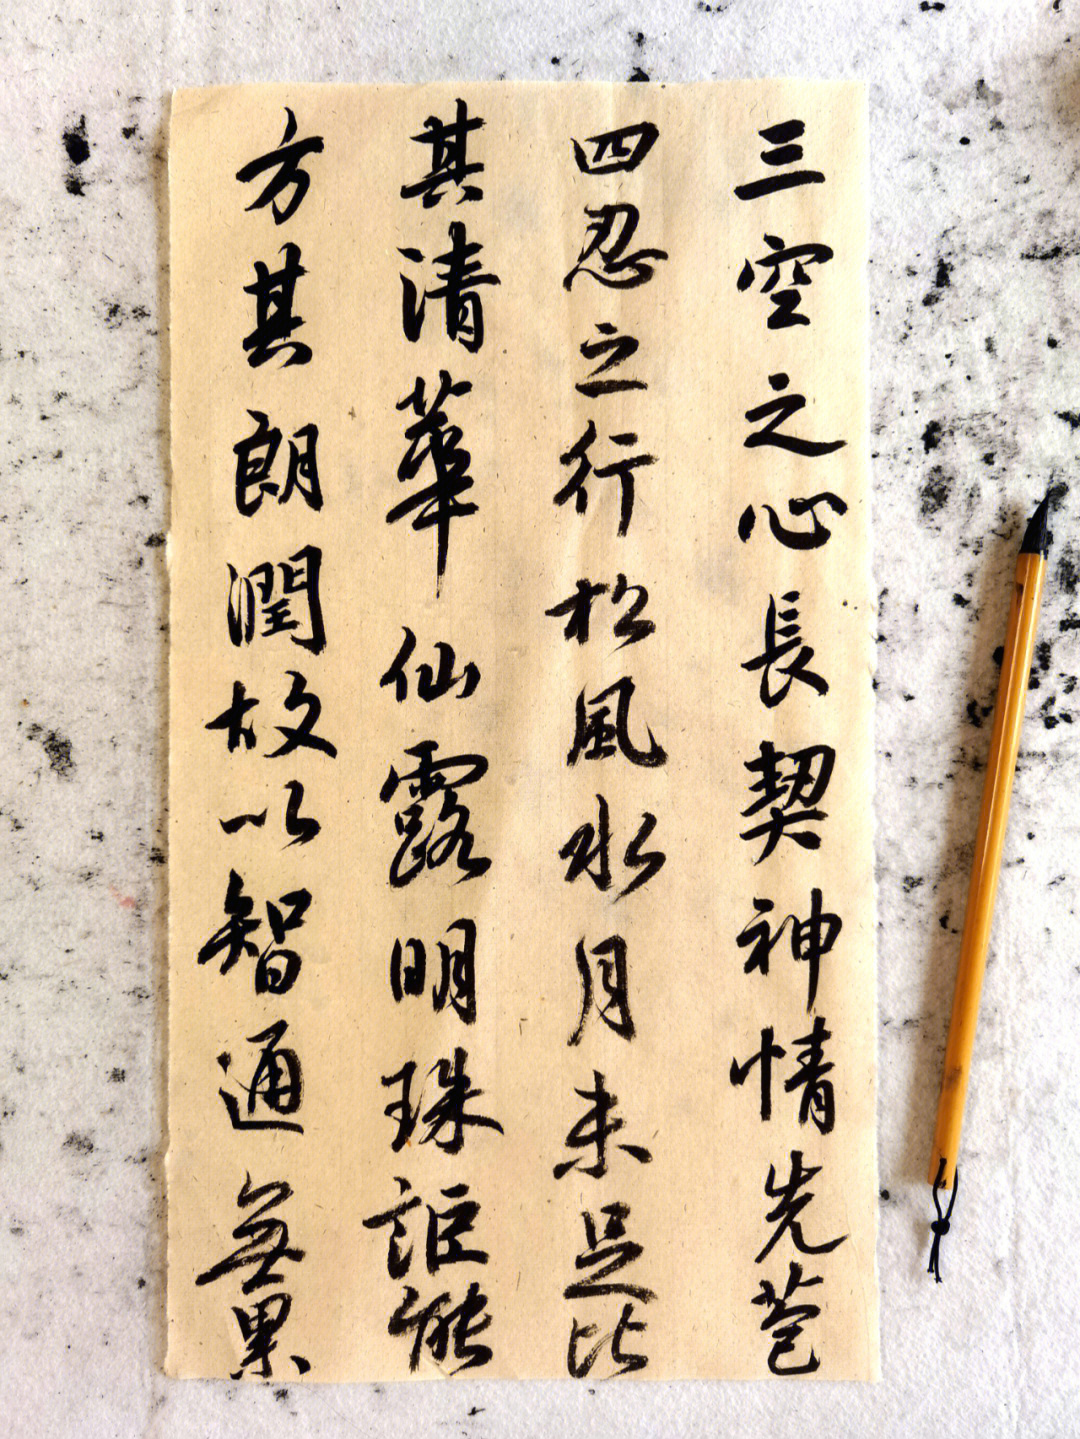 三空之心長契神情先苞
四忍之行松風水月未足比
其清華仙露明珠詎能
方其朗潤故以智通無累